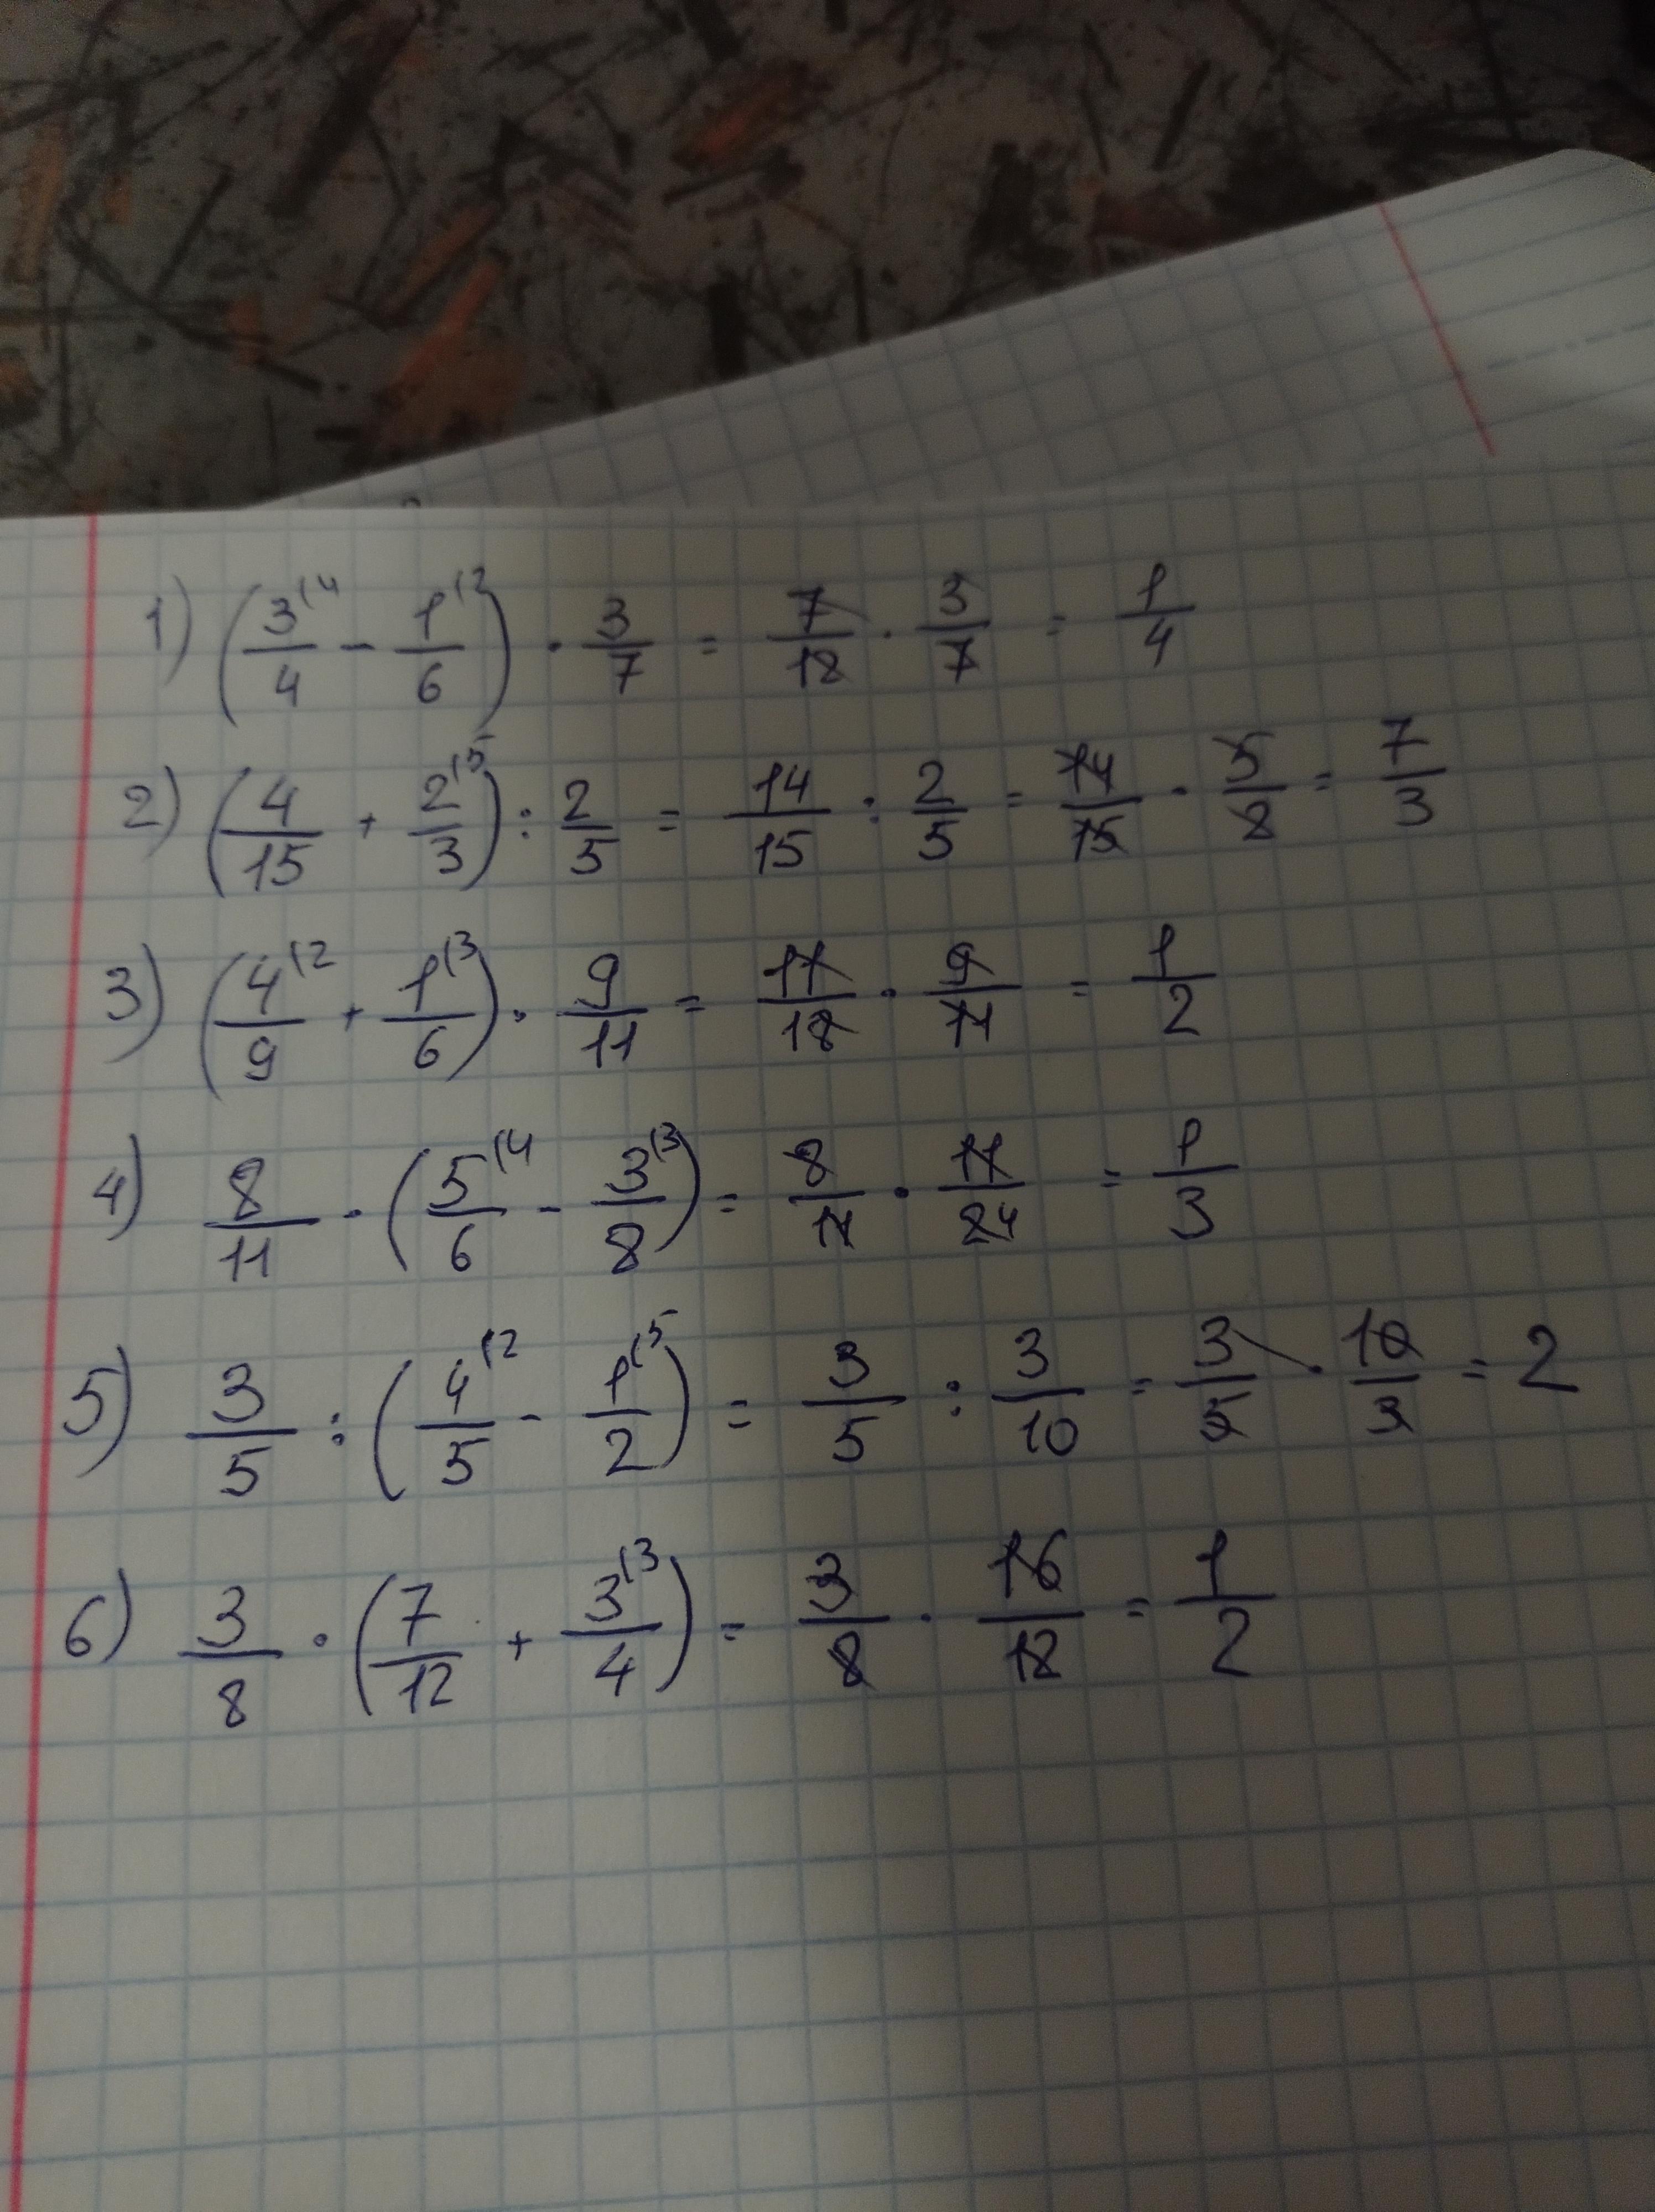 1) (3/4 (4 - 1/6 (2) · 3/7 = 7/12 · 3/7 = 1/4
2) (4/15 + 2/3 (5) : 2/5 = 14/15 : 2/5 = 14/15 · 5/2 = 7/3
3) (4/9 (2 + 1/6 (3) · 9/11 = 11/18 · 9/11 = 1/2
4) 8/11 · (5/6 (4 - 3/8 (3) = 8/11 · 11/24 = 1/3
5) 3/5 : (4/5 (2 - 1/2 (5) = 3/5 : 3/10 = 3/5 · 10/3 = 2
6) 3/8 · (7/12 + 3/4 (3) = 3/8 · 16/12 = 1/2